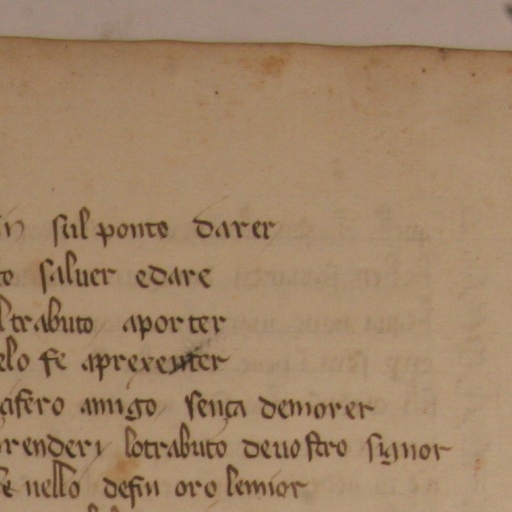 in sul ponto darer
to saluer edare
ltrabuto aporter
elo fe aprexenter
çifero amigo sença demorer
prenderi lotrabuto deuostro signor
se uello defin oro lemior